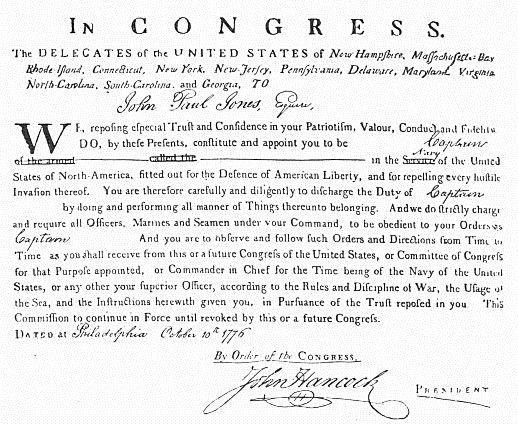 IN CONGRESS.
The DELEGATES of the UNITED STATES of New Hampshire, Maſſachuſetts-Bay
Rhode-Iſland, Connecticut, New-York, New-Jerſey, Pennſylvania, Delaware, Maryland, Virginia
North-Carolina, South-Carolina, and Georgia, TO
John Paul Jones, Eſquire,
WE, repoſing eſpecial Truſt and Confidence in your Patriotiſm, Valour, Conduct and Fidelity
DO, by theſe Preſents, conſtitute and appoint you to be Captain
of the armed called the in the Service Navy of the United
States of North-America, fitted out for the Defence of American Liberty, and for repelling every hoſtile
Invaſion thereof. You are therefore carefully and diligently to diſcharge the Duty of Captain
by doing and performing all manner of Things thereunto belonging. And we do ſtrictly charge
and require all Officers, Marines and Seamen under your Command, to be obedient to your Orders as
Captain And you are to obſerve and follow ſuch Orders and Directions from Time to
Time as you ſhall receive from this or a future Congreſs of the United States, or Committee of Congreſs
for that Purpoſe appointed, or Commander in Chief for the Time being of the Navy of the United
States, or any other your ſuperior Officer, according to the Rules and Diſcipline of War, the Uſage of
the Sea, and the Inſtructions herewith given you, in Purſuance of the Truſt repoſed in you. This
Commiſſion to continue in Force until revoked by this or a future Congreſs.
DATED at Philadelphia October 10th 1776
By Order of the CONGRESS,
John Hancock PRESIDENT